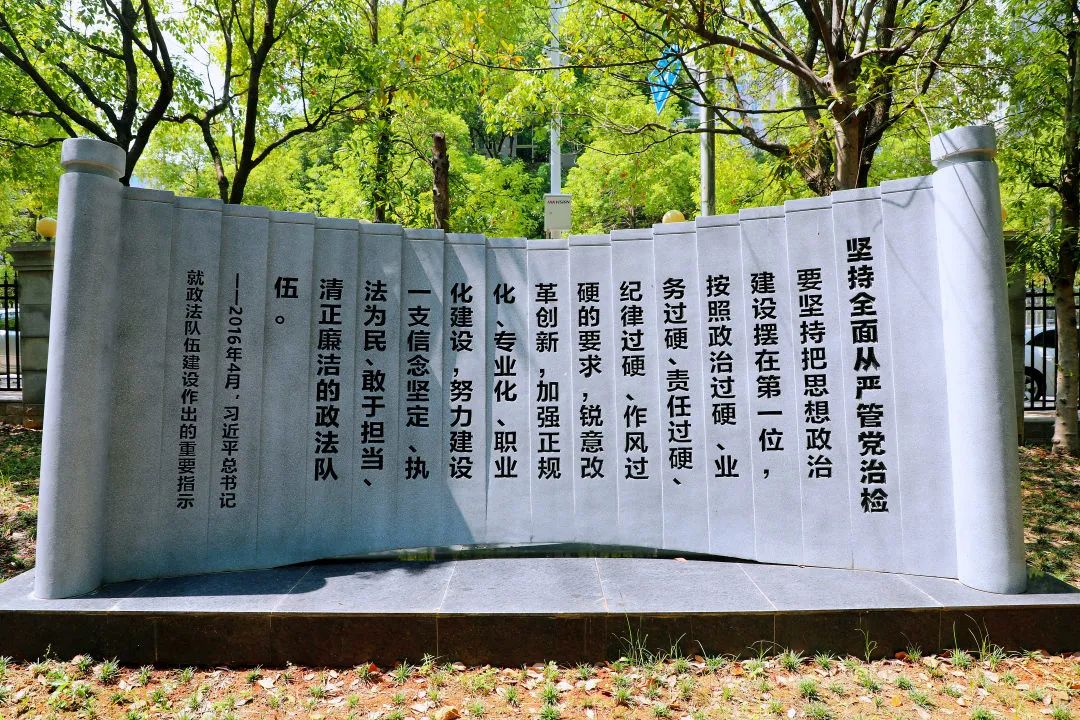 坚持全面从严管党治检
要坚持把思想政治
建设摆在第一位，
按照政治过硬、业
务过硬、责任过硬、
纪律过硬、作风过
硬的要求，锐意改
革创新，加强正规
化、专业化、职业
化建设，努力建设
一支信念坚定、执
法为民、敢于担当、
清正廉洁的政法队
伍。
——2016年4月，习近平总书记
就政法队伍建设作出的重要指示
HIKVISION